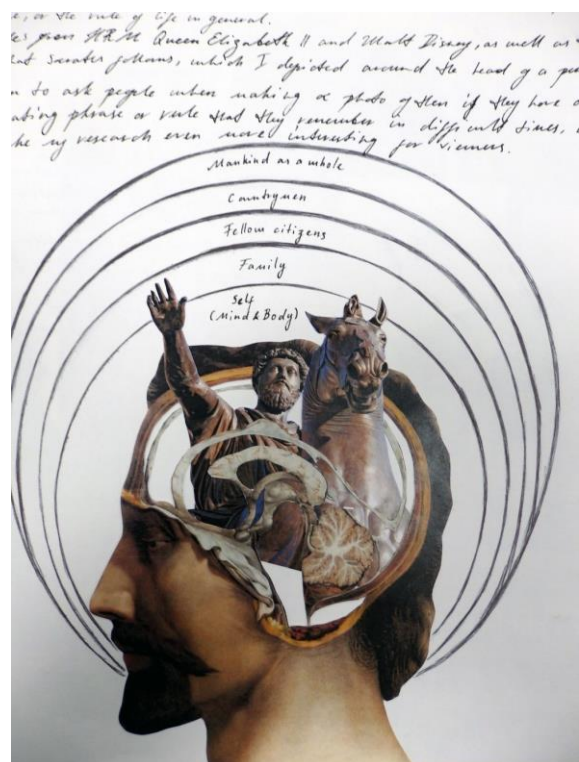 , or the rule of life in general.
from HRM Queen Elizabeth II and Walt Disney, as well as
follows, which I depicted around the head of a
to ask people when making a photo of them if they have
phrase or rule that they remember in difficult times,
my research even more interesting for viewers.
Mankind as a whole
Countrymen
Fellow citizens
Family
Self
(Mind & Body)